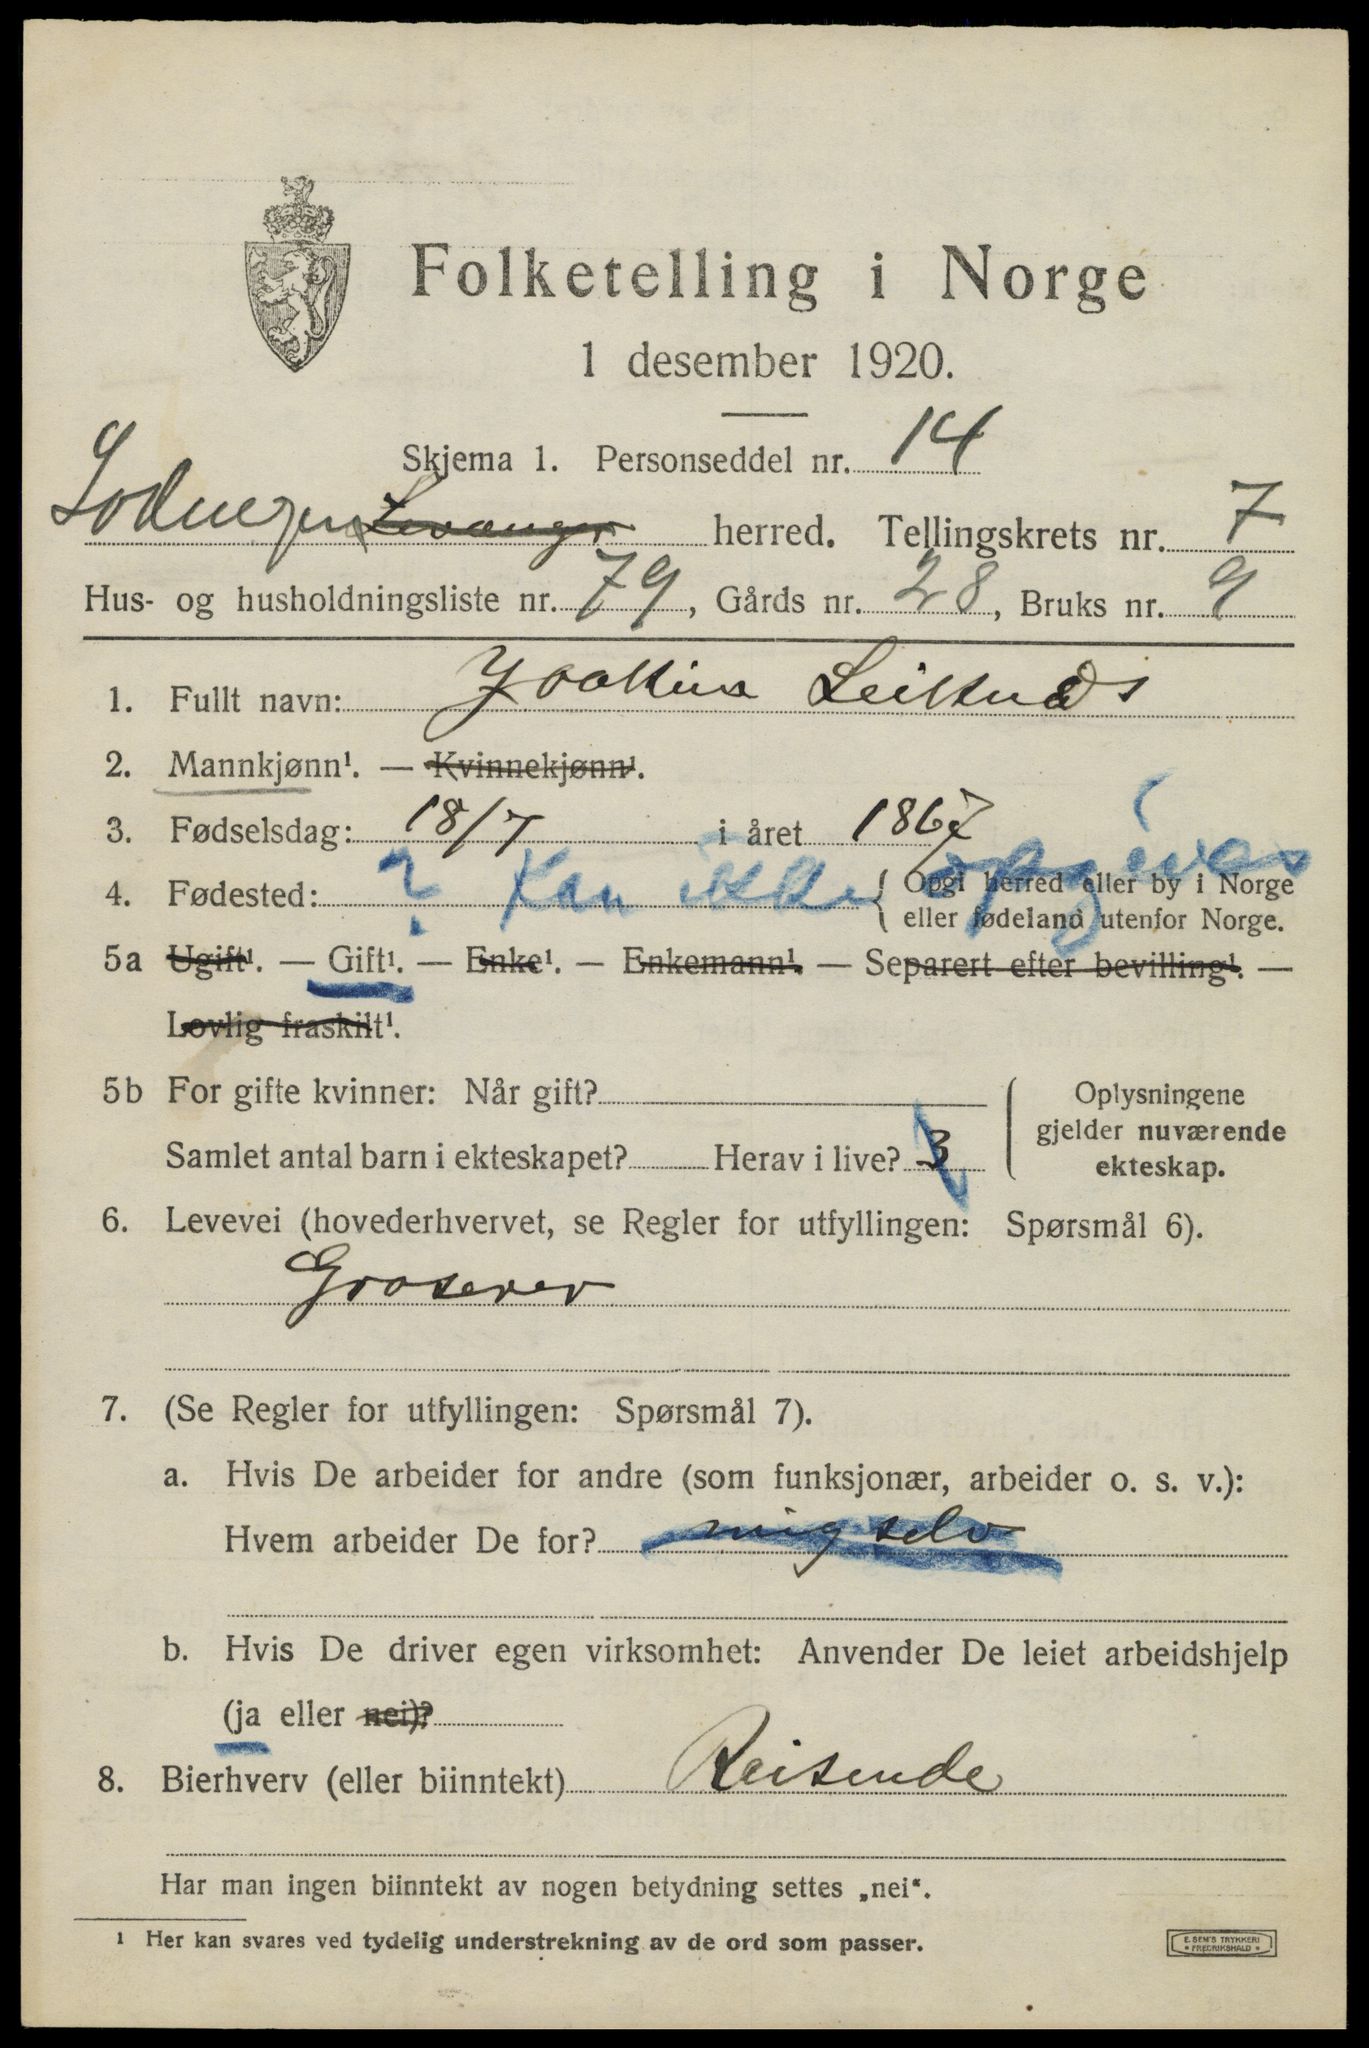 Folketelling i Norge
1 desember 1920.
Skjema 1. Personseddel nr. 14
Lødingen Levanger herred. Tellingskrets nr. 7
Hus- og husholdningsliste nr. 79, Gårds nr. 28, Bruks nr. 9
1. Fullt navn: Joakim
2. Mannkjønn¹. — Kvinnekjønn¹.
3. Fødselsdag: 18/7 i året 1867
4. Fødested: ? Kan ikke opgives { Opgi herred eller by i Norge
eller fødeland utenfor Norge.
5a Ugift¹. — Gift¹. — Enke¹. — Enkemann¹. — Separert efter bevilling¹. —
Lovlig fraskilt¹.
5b For gifte kvinner: Når gift?
Samlet antal barn i ekteskapet? Herav i live? 3
Oplysningene
gjelder nuværende
ekteskap.
6. Levevei (hovederhvervet, se Regler for utfyllingen: Spørsmål 6).
Groserer
7. (Se Regler for utfyllingen: Spørsmål 7).
a. Hvis De arbeider for andre (som funksjonær, arbeider o. s. v.):
Hvem arbeider De for? mig selv
b. Hvis De driver egen virksomhet: Anvender De leiet arbeidshjelp
(ja eller nei)?
8. Bierhverv (eller biinntekt) Reisende
Har man ingen biinntekt av nogen betydning settes „nei“.
¹ Her kan svares ved tydelig understrekning av de ord som passer.
E. SEM'S TRYKKERI
FREDRIKSHALD